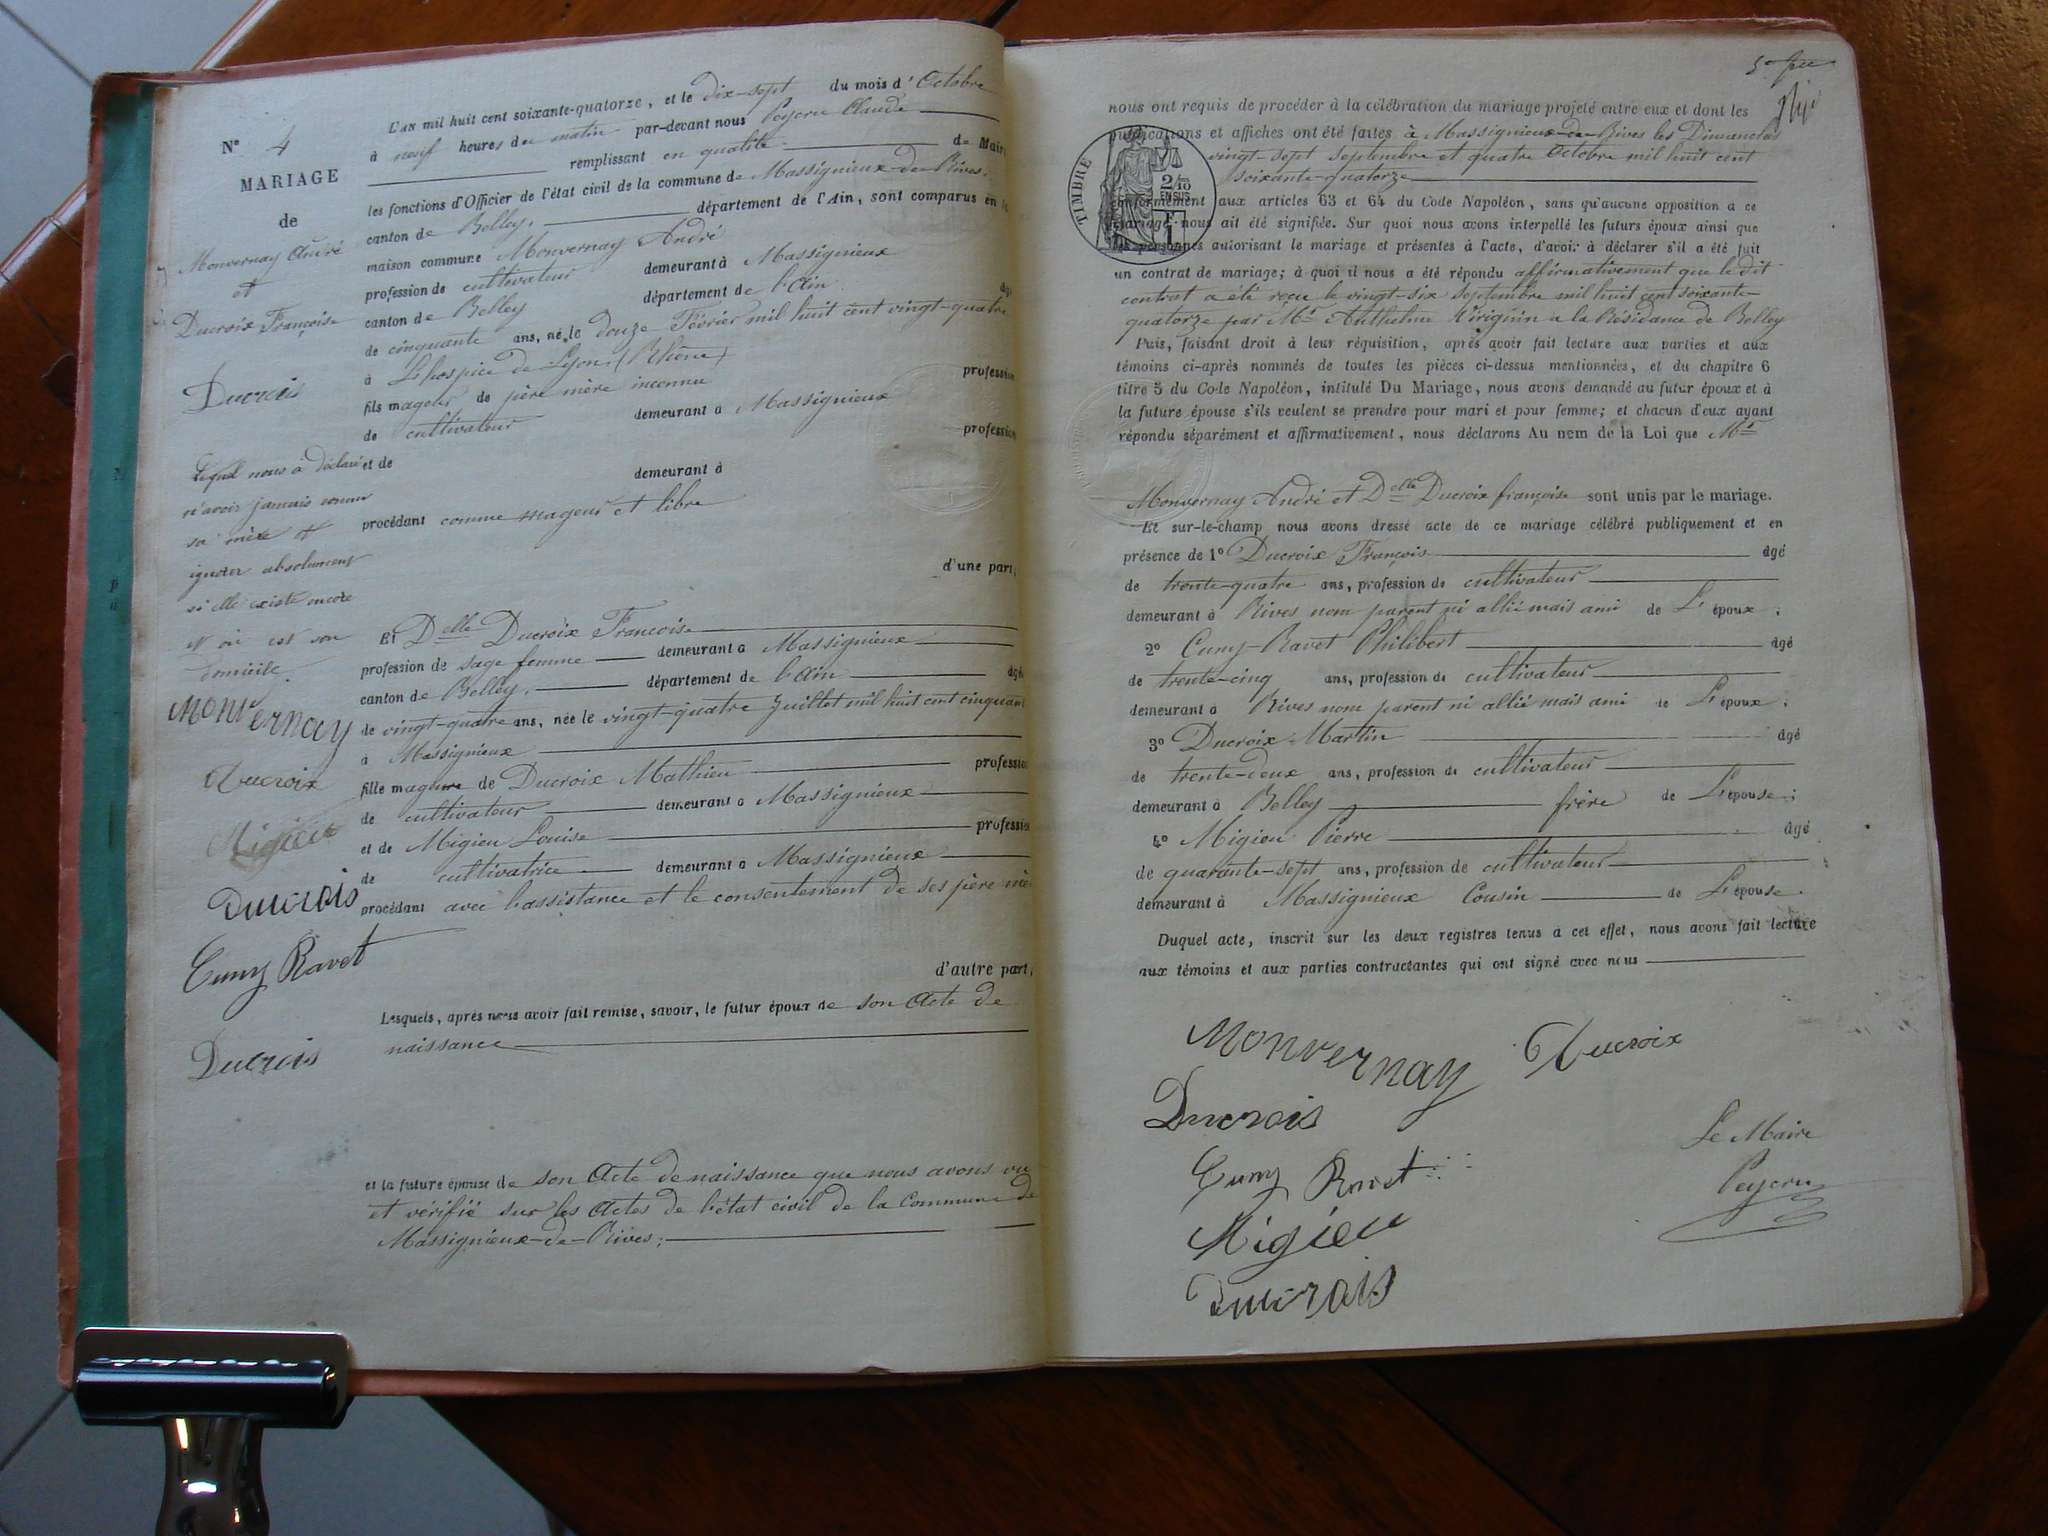 N° 4
MARIAGE
de
Monvernay André
et
Ducroix Françoise
Ducrois
Lequel nous a déclaré
n'avoir jamais connu
sa mère et
ignorer absolument
si elle existe encore
et où est son
domicile.
Monvernay
Ducroix
Migieu
Ducrois
Cuny Ravet
Ducrois
L'an mil huit cent soixante-quatorze, et le dix-sept du mois d'Octobre
à neuf heures du matin par-devant nous Peycru Claude
remplissant en qualité de Maire
les fonctions d'Officier de l'état civil de la commune de Massignieux-de-Rives,
canton de Belley, département de l'Ain, sont comparus en la
maison commune Monvernay André
profession de cultivateur demeurant à Massignieux
canton de Belley département de l'Ain âgé
de cinquante ans, né le douze Février mil huit cent vingt-quatre
à L'hospice de Lyon (Rhône)
fils mageur de père mère inconnu profession
de cultivateur demeurant à Massignieux
profession
et de demeurant à
procédant comme mageur et libre
d'une part,
Et Delle Ducroix Francoise
profession de sage femme demeurant à Massignieux
canton de Belley, département de l'Ain âgé
de vingt-quatre ans, née le vingt-quatre Juillet mil huit cent cinquant
à Massignieux
fille mageure de Ducroix Mathieu profession
de cultivateur demeurant à Massignieux
et de Migieu Louise profession
de cultivatrice demeurant à Massignieux
procédant avec l'assistance et le consentement de ses père mè
d'autre part,
Lesquels, après nous avoir fait remise, savoir, le futur époux de son Acte de
naissance
et la future épouse de son Acte de naissance que nous avons vu
et vérifié sur les Actes de l'état civil de la Commune de
Massignieux-de-Rives;
nous ont requis de procéder à la célébration du mariage projeté entre eux et dont les
publications et affiches ont été faites à Massignieux-de-Rives les Dimanches
vingt-sept Septembre et quatre Octobre mil huit cent
soixante-quatorze
TIMBRE
2/10
EN SUS
1 F
conformément aux articles 63 et 64 du Code Napoléon, sans qu'aucune opposition à ce
mariage nous ait été signifiée. Sur quoi nous avons interpellé les futurs époux ainsi que
les personnes autorisant le mariage et présentes à l'acte, d'avoir à déclarer s'il a été fait
un contrat de mariage; à quoi il nous a été répondu affirmativement que le dit
contrat a été reçu le vingt-six Septembre mil huit cent soixante-
quatorze par Mr Anthelme à la Résidance de Belley
Puis, faisant droit à leur réquisition, après avoir fait lecture aux parties et aux
témoins ci-après nommés de toutes les pièces ci-dessus mentionnées, et du chapitre 6
titre 5 du Code Napoléon, intitulé Du Mariage, nous avons demandé au futur époux et à
la future épouse s'ils veulent se prendre pour mari et pour femme; et chacun d'eux ayant
répondu séparément et affirmativement, nous déclarons Au nom de la Loi que Mr
Monvernay André et Delle Ducroix françoise sont unis par le mariage.
Et sur-le-champ nous avons dressé acte de ce mariage célébré publiquement et en
présence de 1° Ducroix François âgé
de trente-quatre ans, profession de cultivateur
demeurant à Rives nom parent ni allié mais ami de L'époux;
2° Cuny-Ravet Philibert âgé
de trente-cinq ans, profession de cultivateur
demeurant à Rives nom parent ni allié mais ami de L'époux;
3° Ducroix Martin âgé
de trente-deux ans, profession de cultivateur
demeurant à Belley frère de L'épouse;
4° Migieu Pierre âgé
de quarante-sept ans, profession de cultivateur
demeurant à Massignieux Cousin de L'épouse.
Duquel acte, inscrit sur les deux registres tenus à cet effet, nous avons fait lecture
aux témoins et aux parties contractantes qui ont signé avec nous
Monvernay Ducroix
Ducrois
Cuny Ravet
Migieu
Ducrois
Le Maire
Peycru